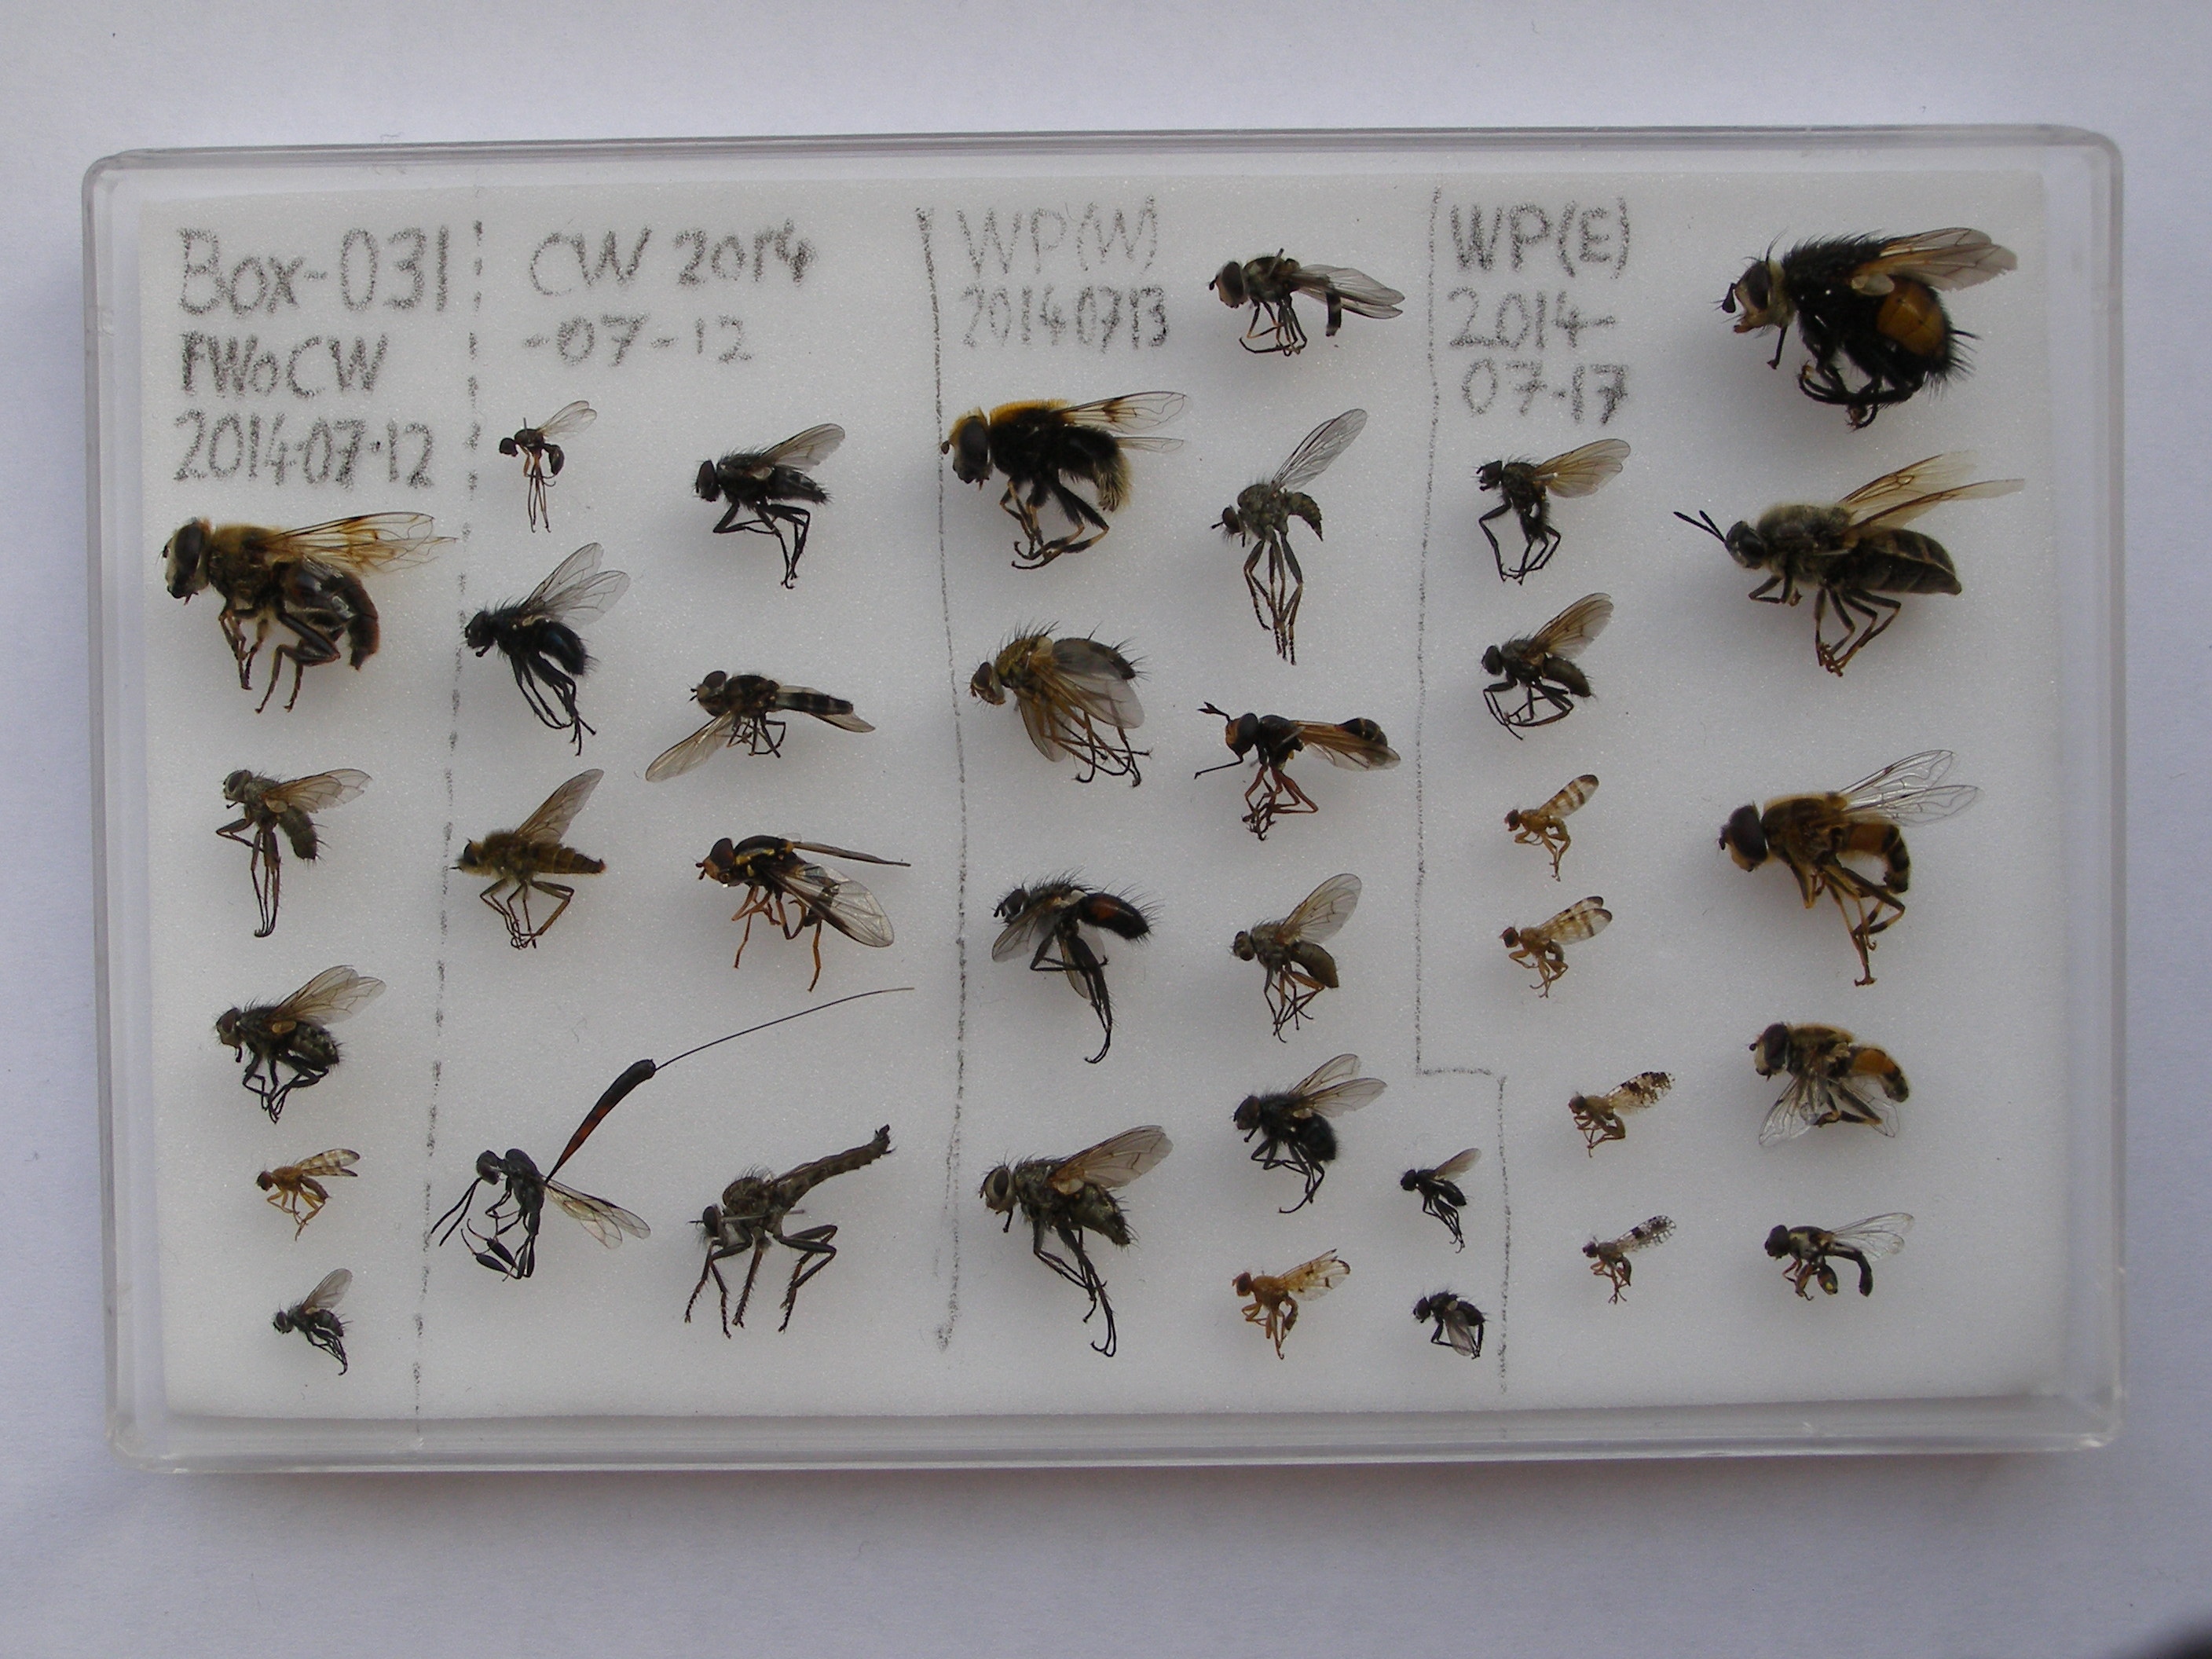 Box-031
FWoCW
2014·07·12
CW 2014
-07-12
WP(W)
20140713
WP(E)
2014-
07-17